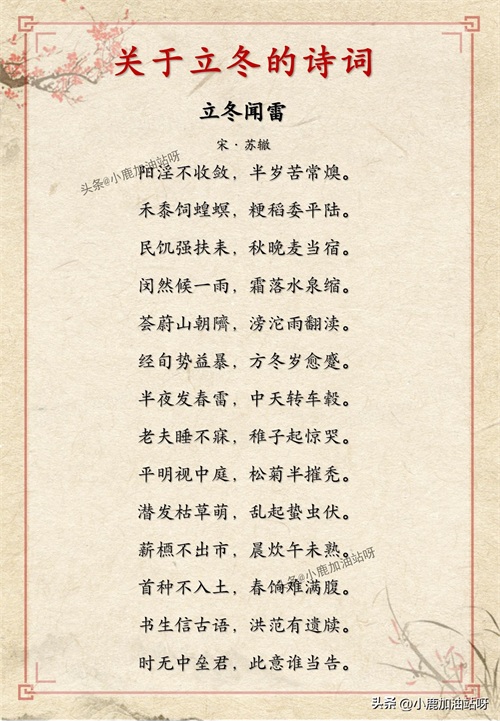 关于立冬的诗词
立冬闻雷
宋·苏辙
头条@小鹿加油站呀
阳淫不收敛，半岁苦常燠。
禾黍饲蝗螟，粳稻委平陆。
民饥强扶耒，秋晚麦当宿。
闵然候一雨，霜落水泉缩。
荟蔚山朝隮，滂沱雨翻渎。
经旬势益暴，方冬岁愈蹙。
半夜发春雷，中天转车毂。
老夫睡不寐，稚子起惊哭。
平明视中庭，松菊半摧秃。
潜发枯草萌，乱起蛰虫伏。
薪槱不出市，晨炊午未熟。
头条@小鹿加油站呀
首种不入土，春饷难满腹。
书生信古语，洪范有遗牍。
时无中垒君，此意谁当告。
头条 @小鹿加油站呀